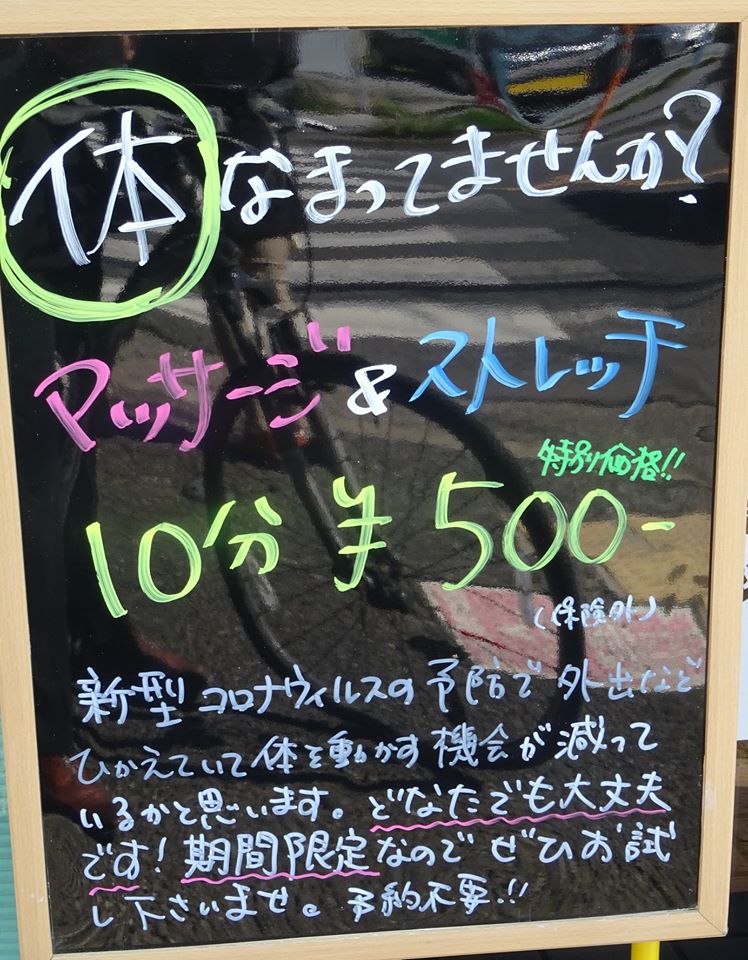 体なまってませんか?
マッサージ&ストレッチ
特別価格!!
10分 ¥500-
(保険外)
新型コロナウィルスの予防で外出など
ひかえていて体を動かす機会が減って
いるかと思います。どなたでも大丈夫
です!期間限定なのでぜひお試
し下さいませ。予約不要!!